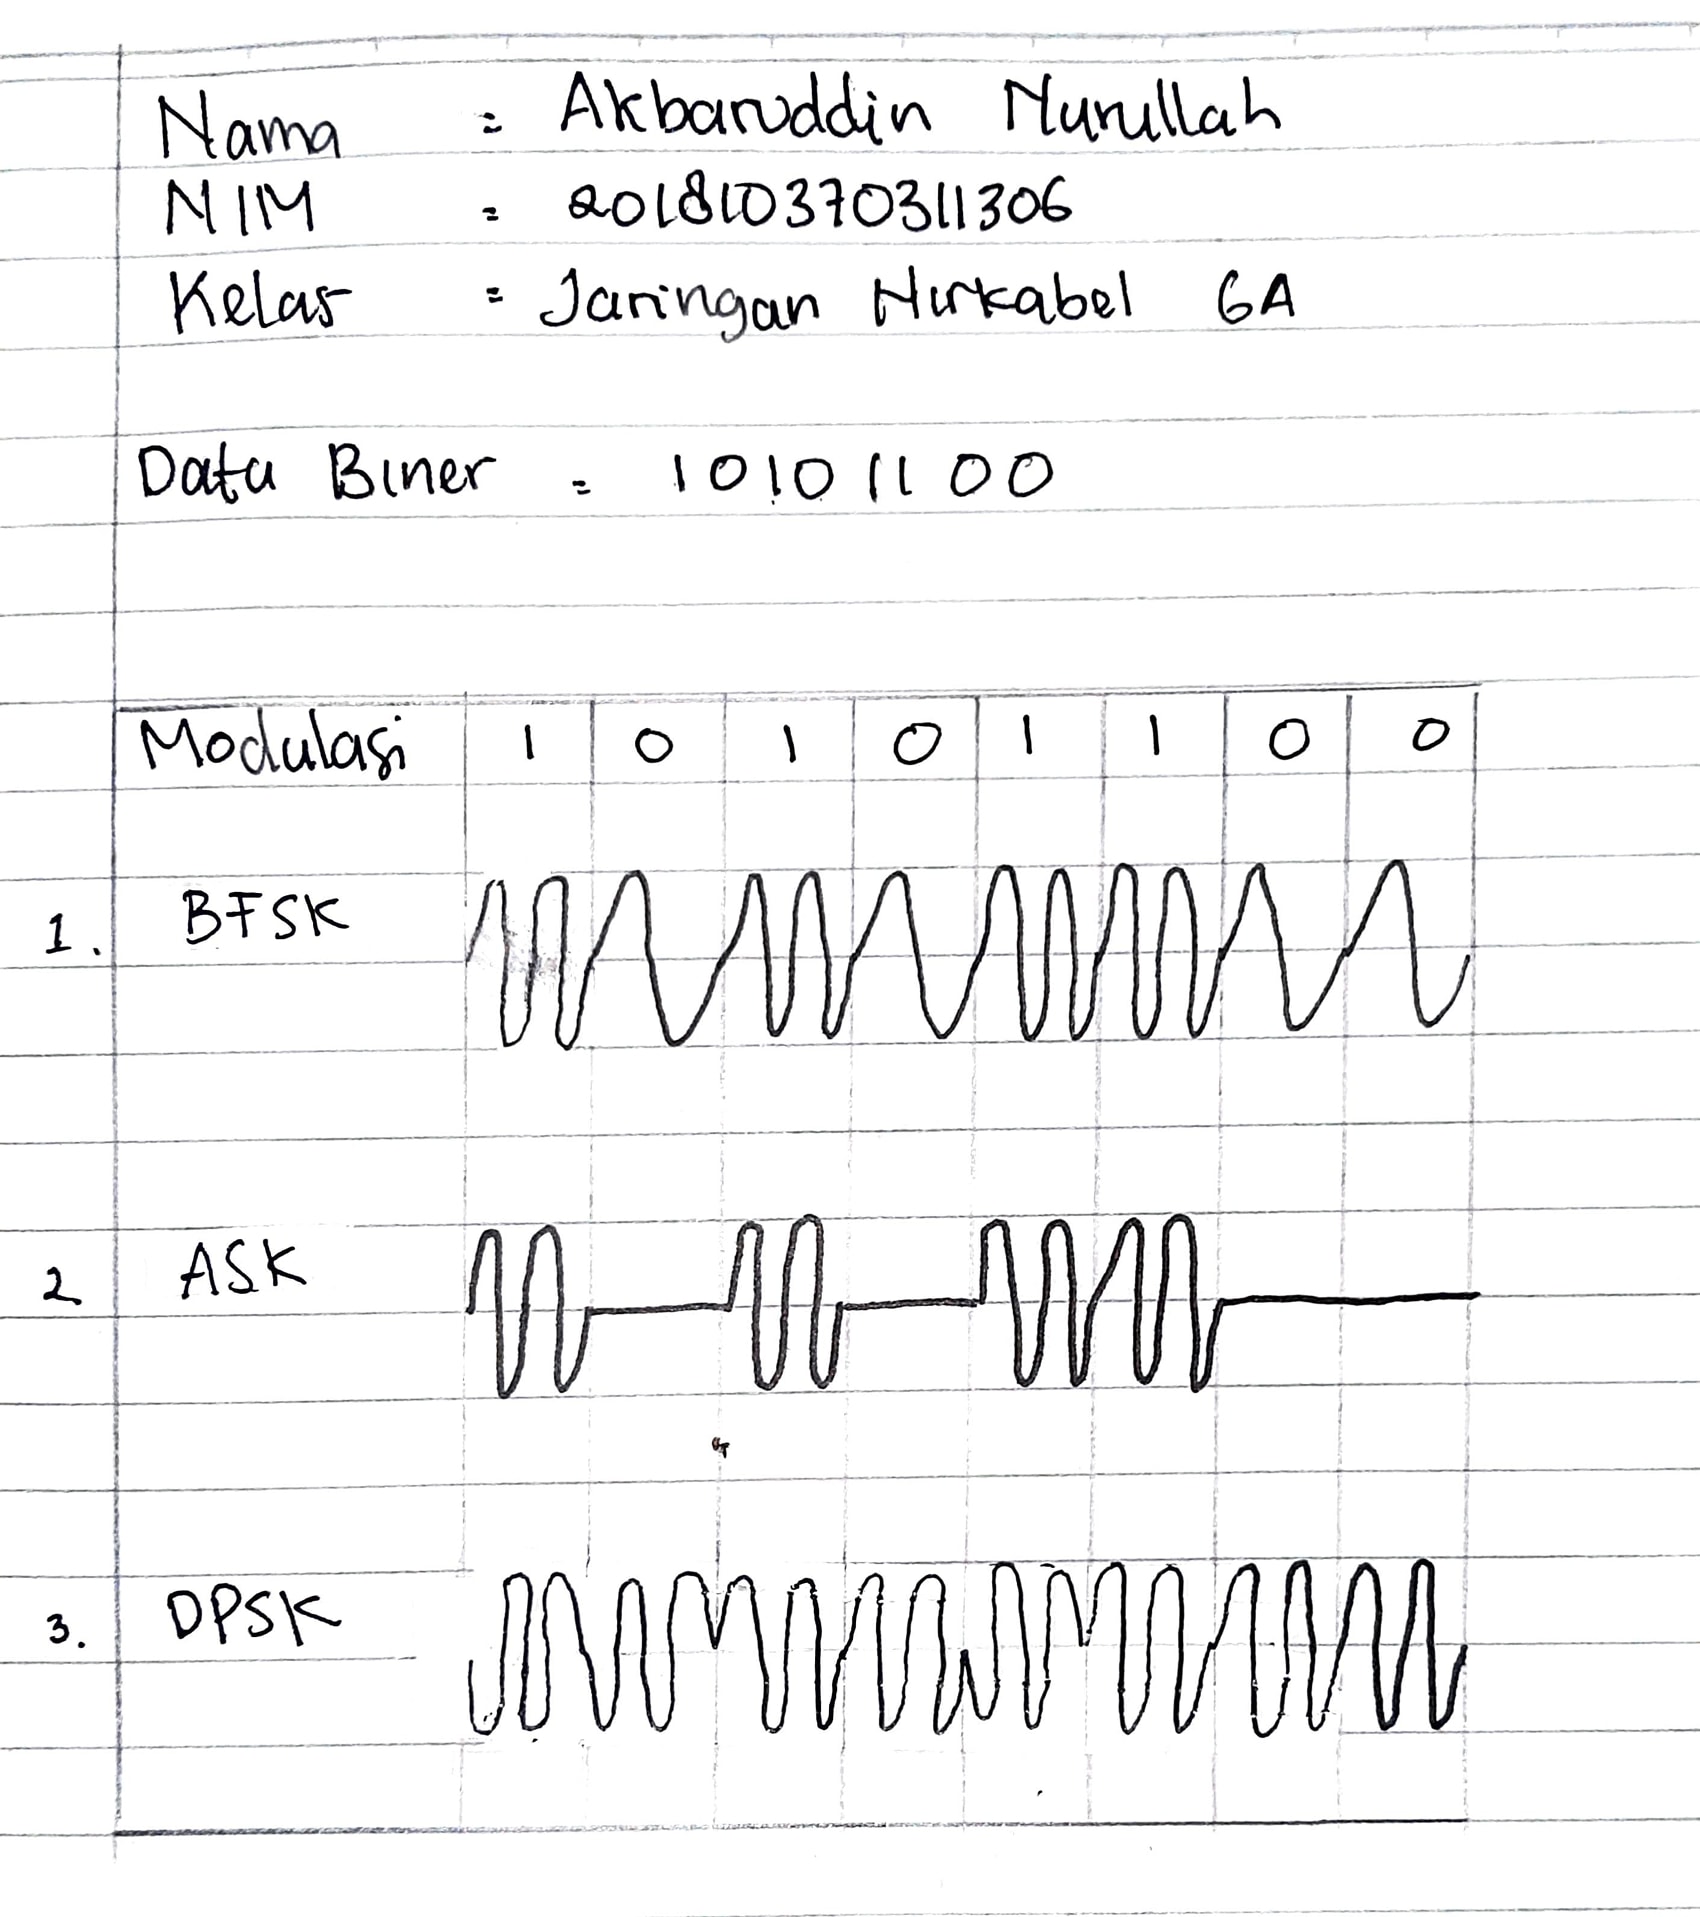 Nama = Akbaruddin Nurullah
NIM = 201810370311306
Kelas = Jaringan Nirkabel 6A
Data Biner = 10101100
Modulasi 1 0 1 0 1 1 0 0
1. BFSK
2 ASK
3. DPSK